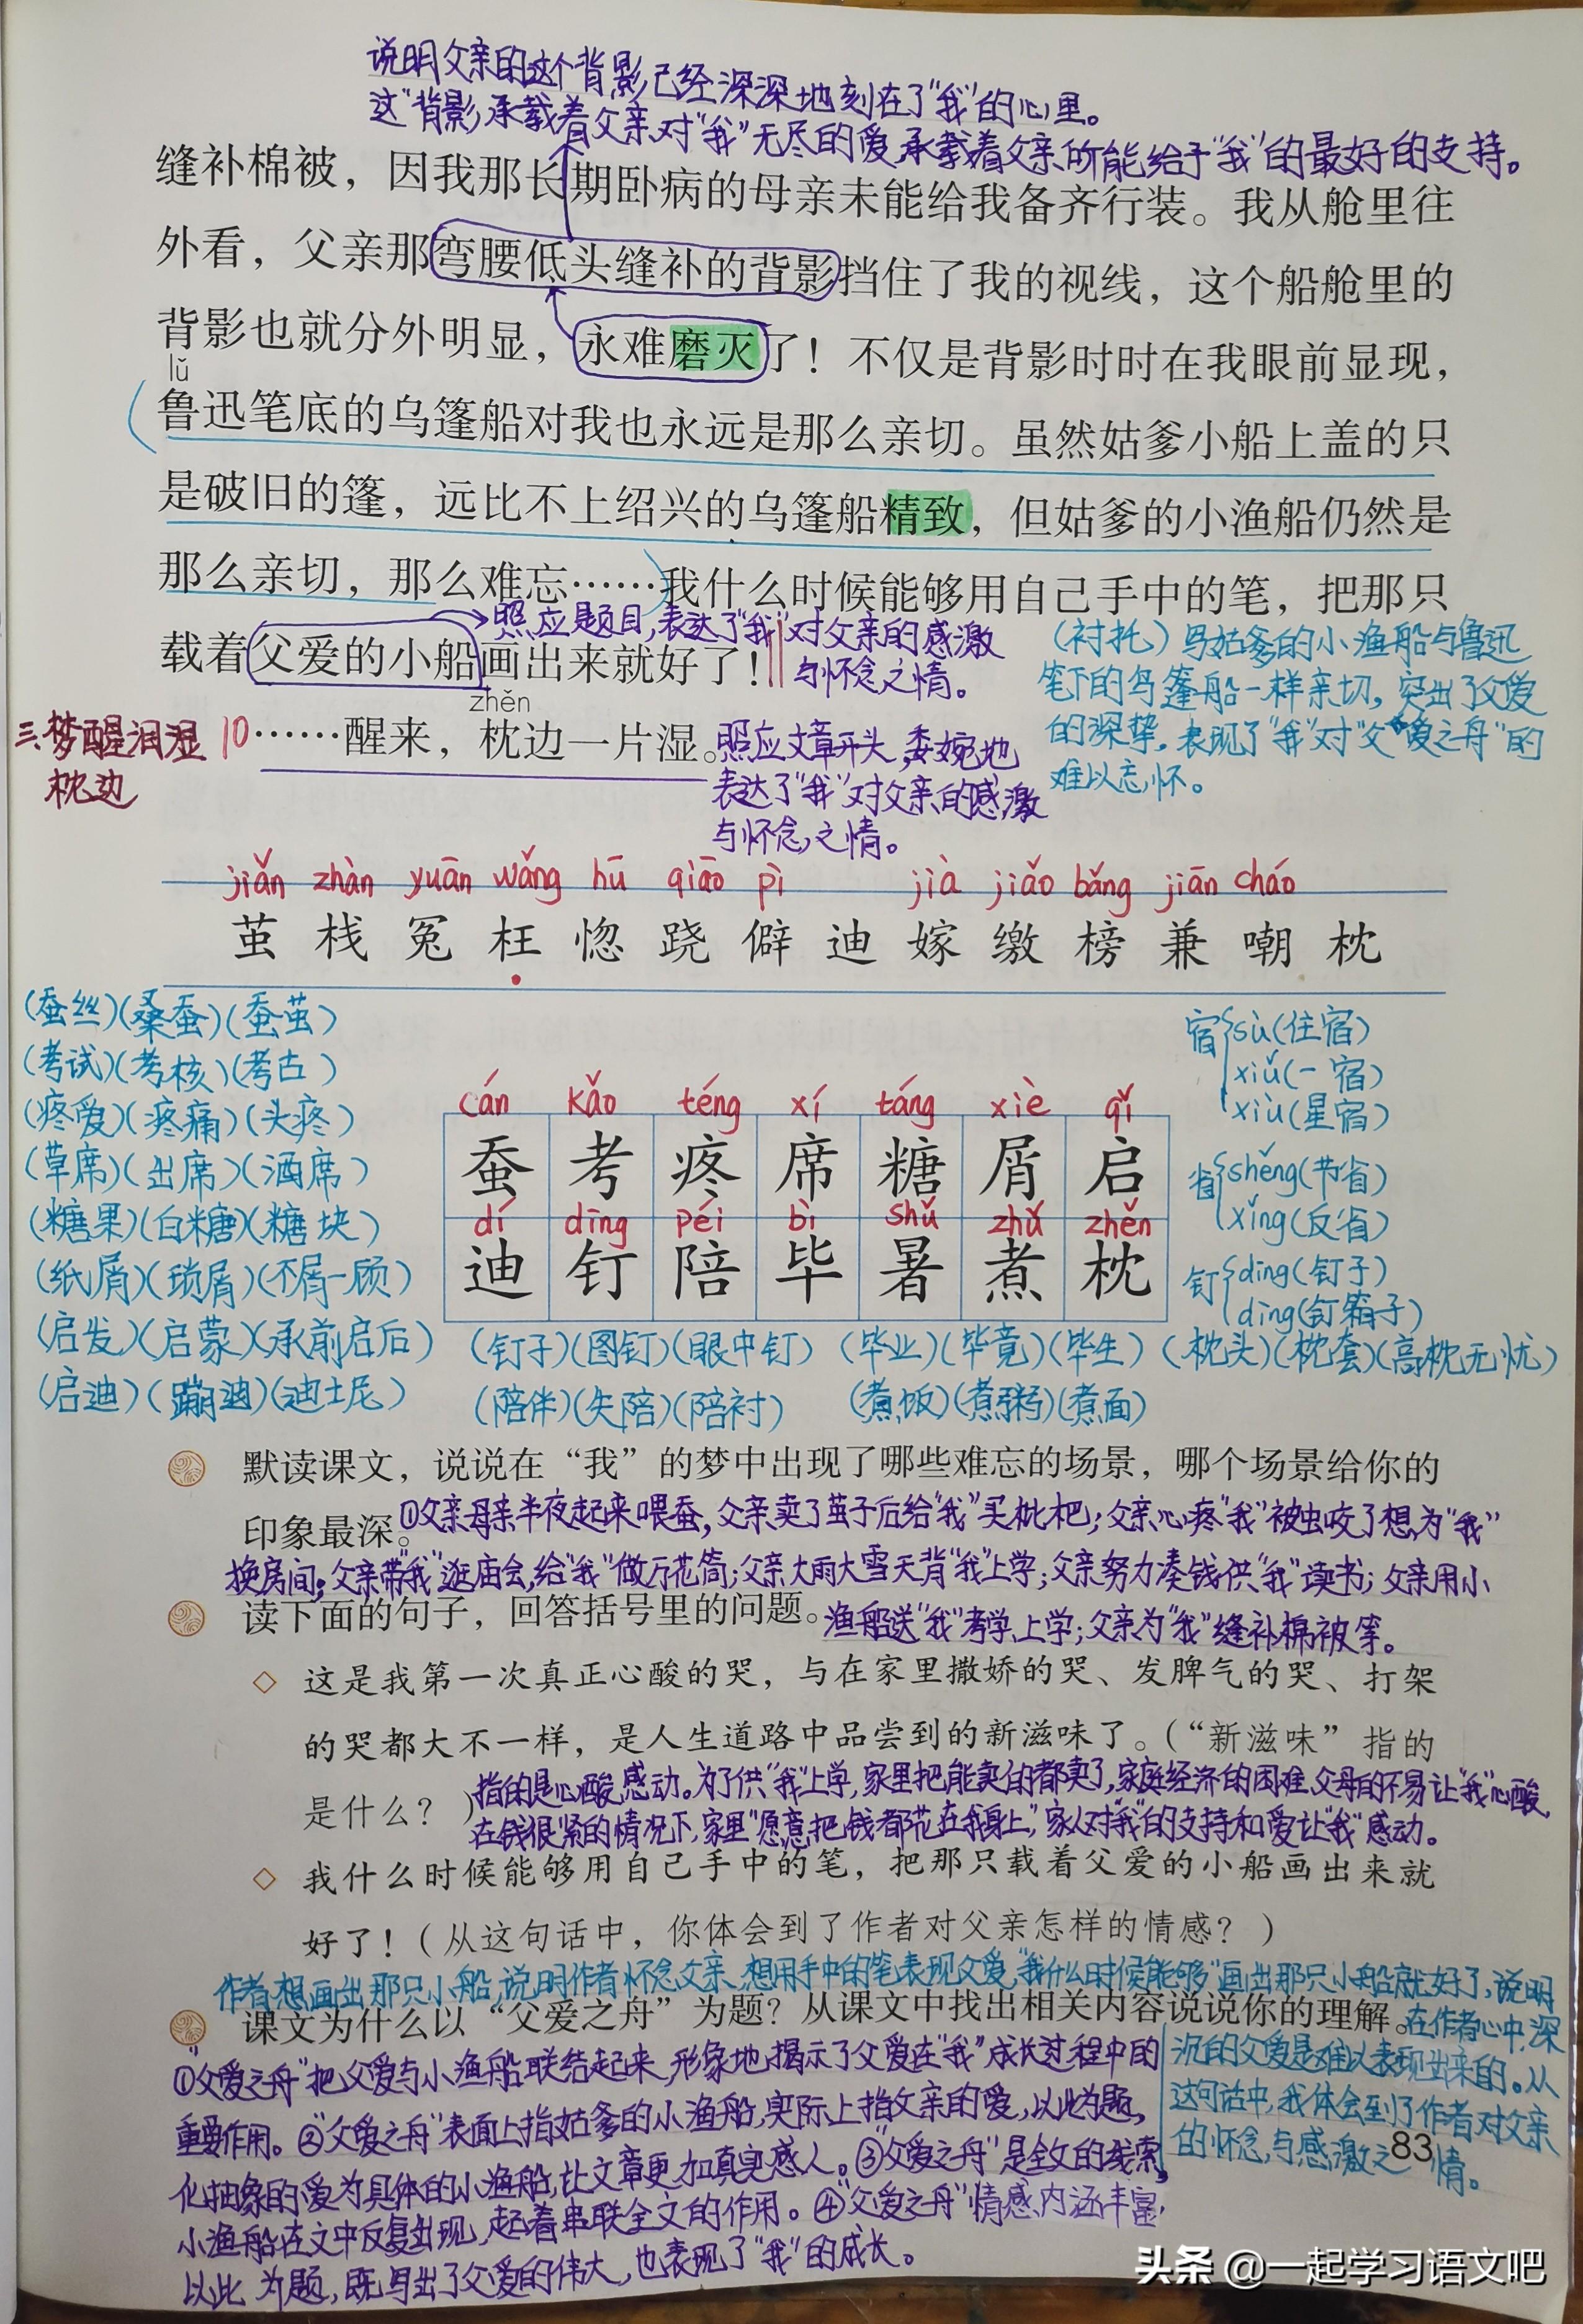 说明父亲的这个背影已经深深地刻在了“我”的心里。
这“背影”承载着父亲对“我”无尽的爱,承载着父亲所能给于“我”的最好的支持。
缝补棉被，因我那长期卧病的母亲未能给我备齐行装。我从舱里往
外看，父亲那弯腰低头缝补的背影挡住了我的视线，这个船舱里的
背影也就分外明显，永难磨灭了！不仅是背影时时在我眼前显现，
lǔ
鲁迅笔底的乌篷船对我也永远是那么亲切。虽然姑爹小船上盖的只
是破旧的篷，远比不上绍兴的乌篷船精致，但姑爹的小渔船仍然是
那么亲切，那么难忘……我什么时候能够用自己手中的笔，把那只
照应题目,表达了“我”对父亲的感激
与怀念之情。
载着父爱的小船画出来就好了！
(衬托)写姑爹的小渔船与鲁迅
笔下的乌篷船一样亲切,突出了父爱
的深挚,表现了“我”对“父爱之舟”的
难以忘怀。
zhěn
三、梦醒泪湿
枕边
10……醒来，枕边一片湿。
照应文章开头,委婉地
表达了“我”对父亲的感激
与怀念之情。
jiǎn zhàn yuān wǎng hū qiāo pì jià jiǎo bǎng jiān cháo
茧 栈 冤 枉 惚 跷 僻 迪 嫁 缴 榜 兼 嘲 枕
(蚕丝)(桑蚕)(蚕茧)
(考试)(考核)(考古)
(疼爱)(疼痛)(头疼)
(草席)(出席)(酒席)
(糖果)(白糖)(糖块)
(纸屑)(琐屑)(不屑一顾)
(启发)(启蒙)(承前启后)
(启迪)(蹦迪)(迪士尼)
cán kǎo téng xí táng xiè qǐ
蚕 考 疼 席 糖 屑 启
dí dīng péi bì shǔ zhǔ zhěn
迪 钉 陪 毕 暑 煮 枕
宿 sù(住宿)
xiǔ(一宿)
xiù(星宿)
省 shěng(节省)
xǐng(反省)
钉 dīng(钉子)
dìng(钉箱子)
(钉子)(图钉)(眼中钉) (毕业)(毕竟)(毕生) (枕头)(枕套)(高枕无忧)
(陪伴)(失陪)(陪衬) (煮饭)(煮粥)(煮面)
默读课文，说说在“我”的梦中出现了哪些难忘的场景，哪个场景给你的
印象最深。
①父亲母亲半夜起来喂蚕,父亲卖了茧子后给“我”买枇杷;父亲心疼“我”被虫咬了想为“我”
换房间;父亲带“我”逛庙会,给“我”做万花筒;父亲大雨大雪天背“我”上学;父亲努力凑钱供“我”读书;父亲用小
渔船送“我”考学、上学;父亲为“我”缝补棉被等。
读下面的句子，回答括号里的问题。
◇ 这是我第一次真正心酸的哭，与在家里撒娇的哭、发脾气的哭、打架
的哭都大不一样，是人生道路中品尝到的新滋味了。（“新滋味”指的
是什么？）
指的是心酸、感动。为了供“我”上学,家里把能卖的都卖了,家庭经济的困难、父母的不易让“我”心酸,
在钱很紧的情况下,家里“愿意把钱都花在我身上”,家人对“我”的支持和爱让“我”感动。
◇ 我什么时候能够用自己手中的笔，把那只载着父爱的小船画出来就
好了！（从这句话中，你体会到了作者对父亲怎样的情感？）
作者想画出那只小船,说明作者怀念父亲、想用手中的笔表现父爱,“我什么时候能够”画出那只小船就好了,说明
在作者心中,深
沉的父爱是难以表现出来的。从
这句话中,我体会到了作者对父亲
的怀念与感激之情。
课文为什么以“父爱之舟”为题？从课文中找出相关内容说说你的理解。
①“父爱之舟”把父爱与小渔船联结起来,形象地揭示了父爱在“我”成长过程中的
重要作用。②“父爱之舟”表面上指姑爹的小渔船,实际上指父亲的爱,以此为题,
化抽象的爱为具体的小渔船,让文章更加真实感人。③“父爱之舟”是全文的线索,
小渔船在文中反复出现,起着串联全文的作用。④“父爱之舟”情感内涵丰富,
以此为题,既写出了父爱的伟大,也表现了“我”的成长。
83
头条 @一起学习语文吧